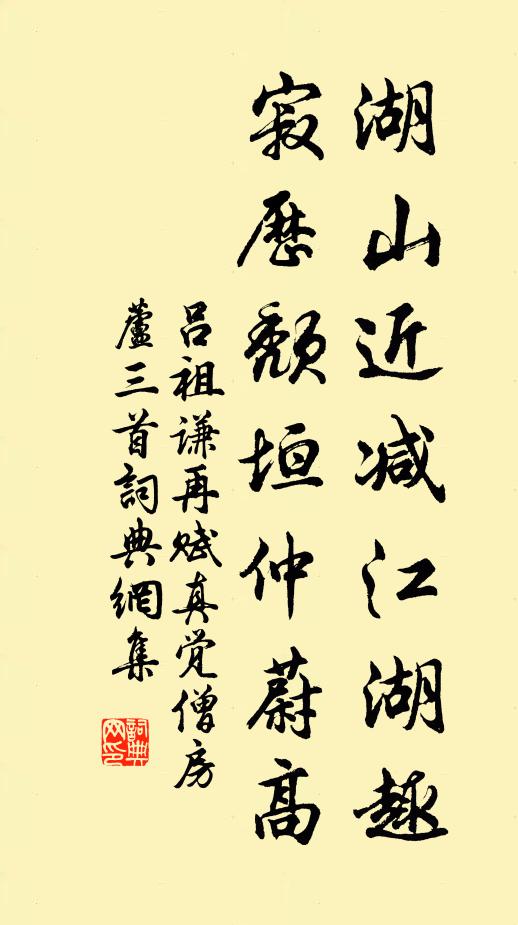 湖山近减江湖趣
寂歷頹垣仲蔚高
呂祖谦再赋真觉僧房
蘆三首詞典網集
詞典网印